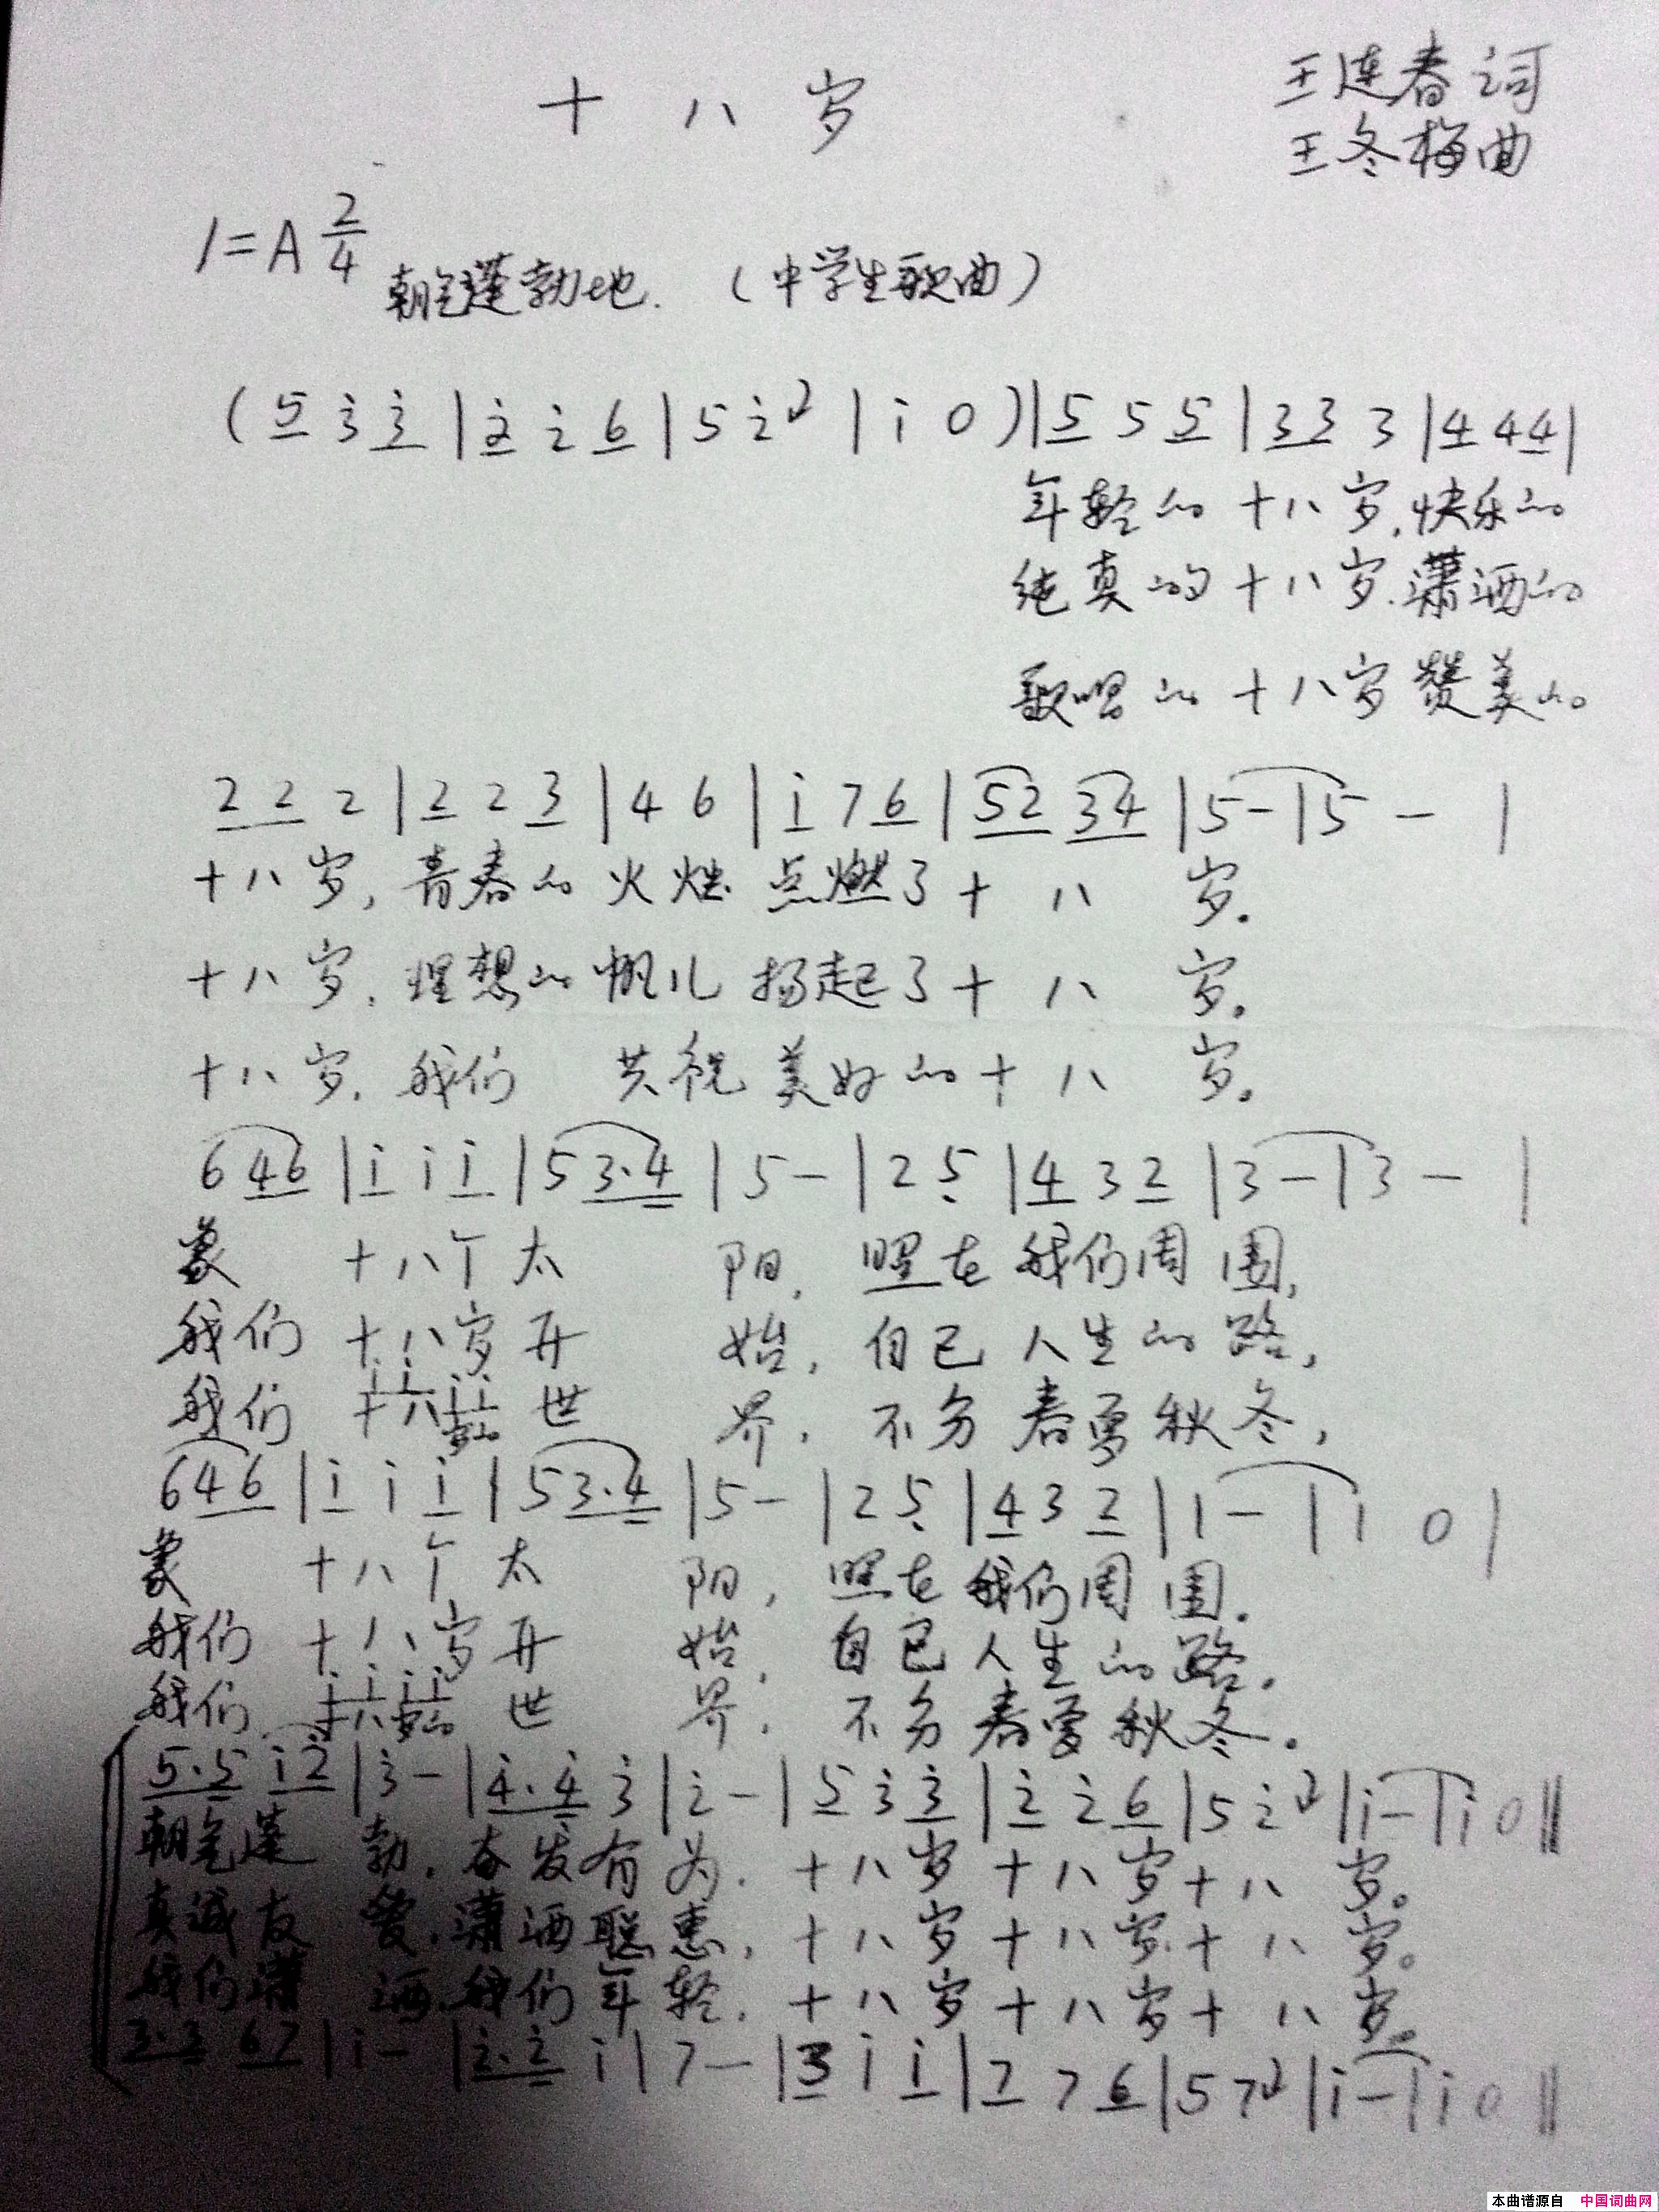 十八岁
王连春词
王冬梅曲
1=A 2/4
朝气蓬勃地. (中学生歌曲)
(5 3̇ 3̇ | 2̇ 2̇ 6 | 5 2̇ | 1̇ 0) | 5 5 5 | 3 3 3 | 4 4 4 |
年轻的十八岁,快乐的
纯真的十八岁.潇洒的
歌唱的十八岁赞美的
2 2 2 | 2 2 3 | 4 6 | 1̇ 7 6 | 52 34 | 5 - | 5 - |
十八岁,青春的火炬点燃了十八岁.
十八岁,理想的帆儿扬起了十八岁。
十八岁.我们共祝美好的十八岁。
6 46 | 1̇ 1̇ 1̇ | 5 3.4 | 5 - | 2 5̣ | 4 3 2 | 3 - | 3 - |
象十八个太阳,照在我们周围,
我们十八岁开始,自己人生的路,
1̇ 1̇ 1̇ 1̇
我们十八岁的世界,不分春夏秋冬,
6 46 | 1̇ 1̇ 1̇ | 5 3.4 | 5 - | 2 5̣ | 4 3 2 | 1 - | 1 0 |
象十八个太阳,照在我们周围.
我们十八岁开始,自己人生的路.
1̇ 1̇ 1̇ 1̇
我们十八岁的世界,不分春夏秋冬。
5.5 1̇2̇ | 3̇ - | 4̇.4̇ 3̇ | 2̇ - | 5 3̇ 3̇ | 2̇ 2̇ 6 | 5 2̇ | 1̇ - | 1̇ 0 ‖
朝气蓬勃,奋发有为.十八岁十八岁十八岁。
真诚友爱,潇洒聪惠,十八岁十八岁.十八岁。
我们潇洒,我们年轻,十八岁十八岁十八岁。
3.3 67 | 1̇ - | 2̇.2̇ 1̇ | 7 - | 3 1̇ 1̇ | 7 7 6 | 5 7 | 1̇ - | 1̇ 0 ‖
本曲谱源自 中国词曲网